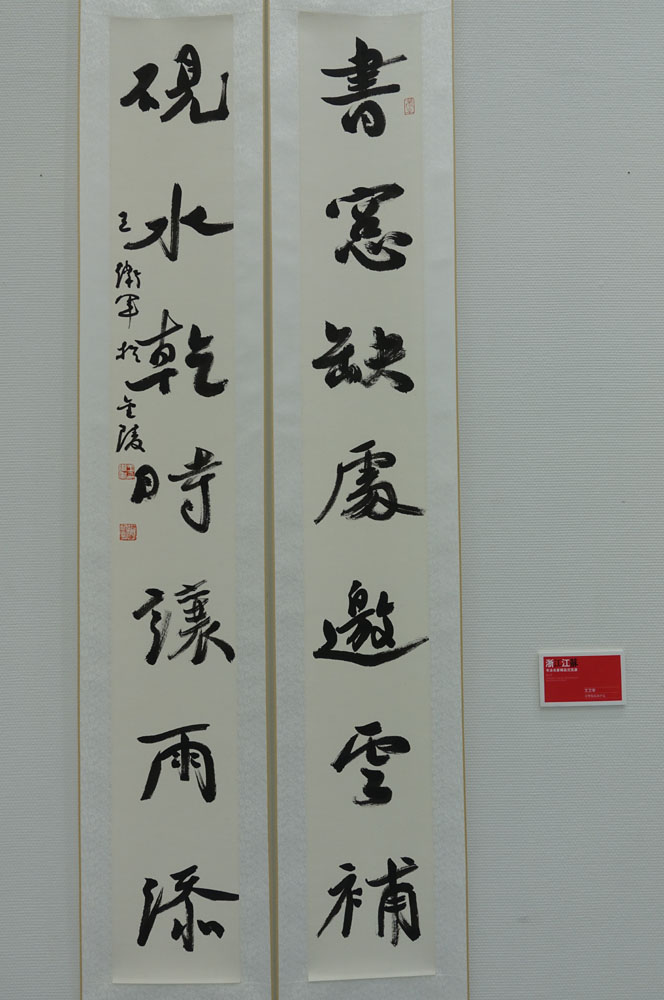 書窓缺處邀雲補
硯水乾時讓雨添
王衛軍於金陵
浙江